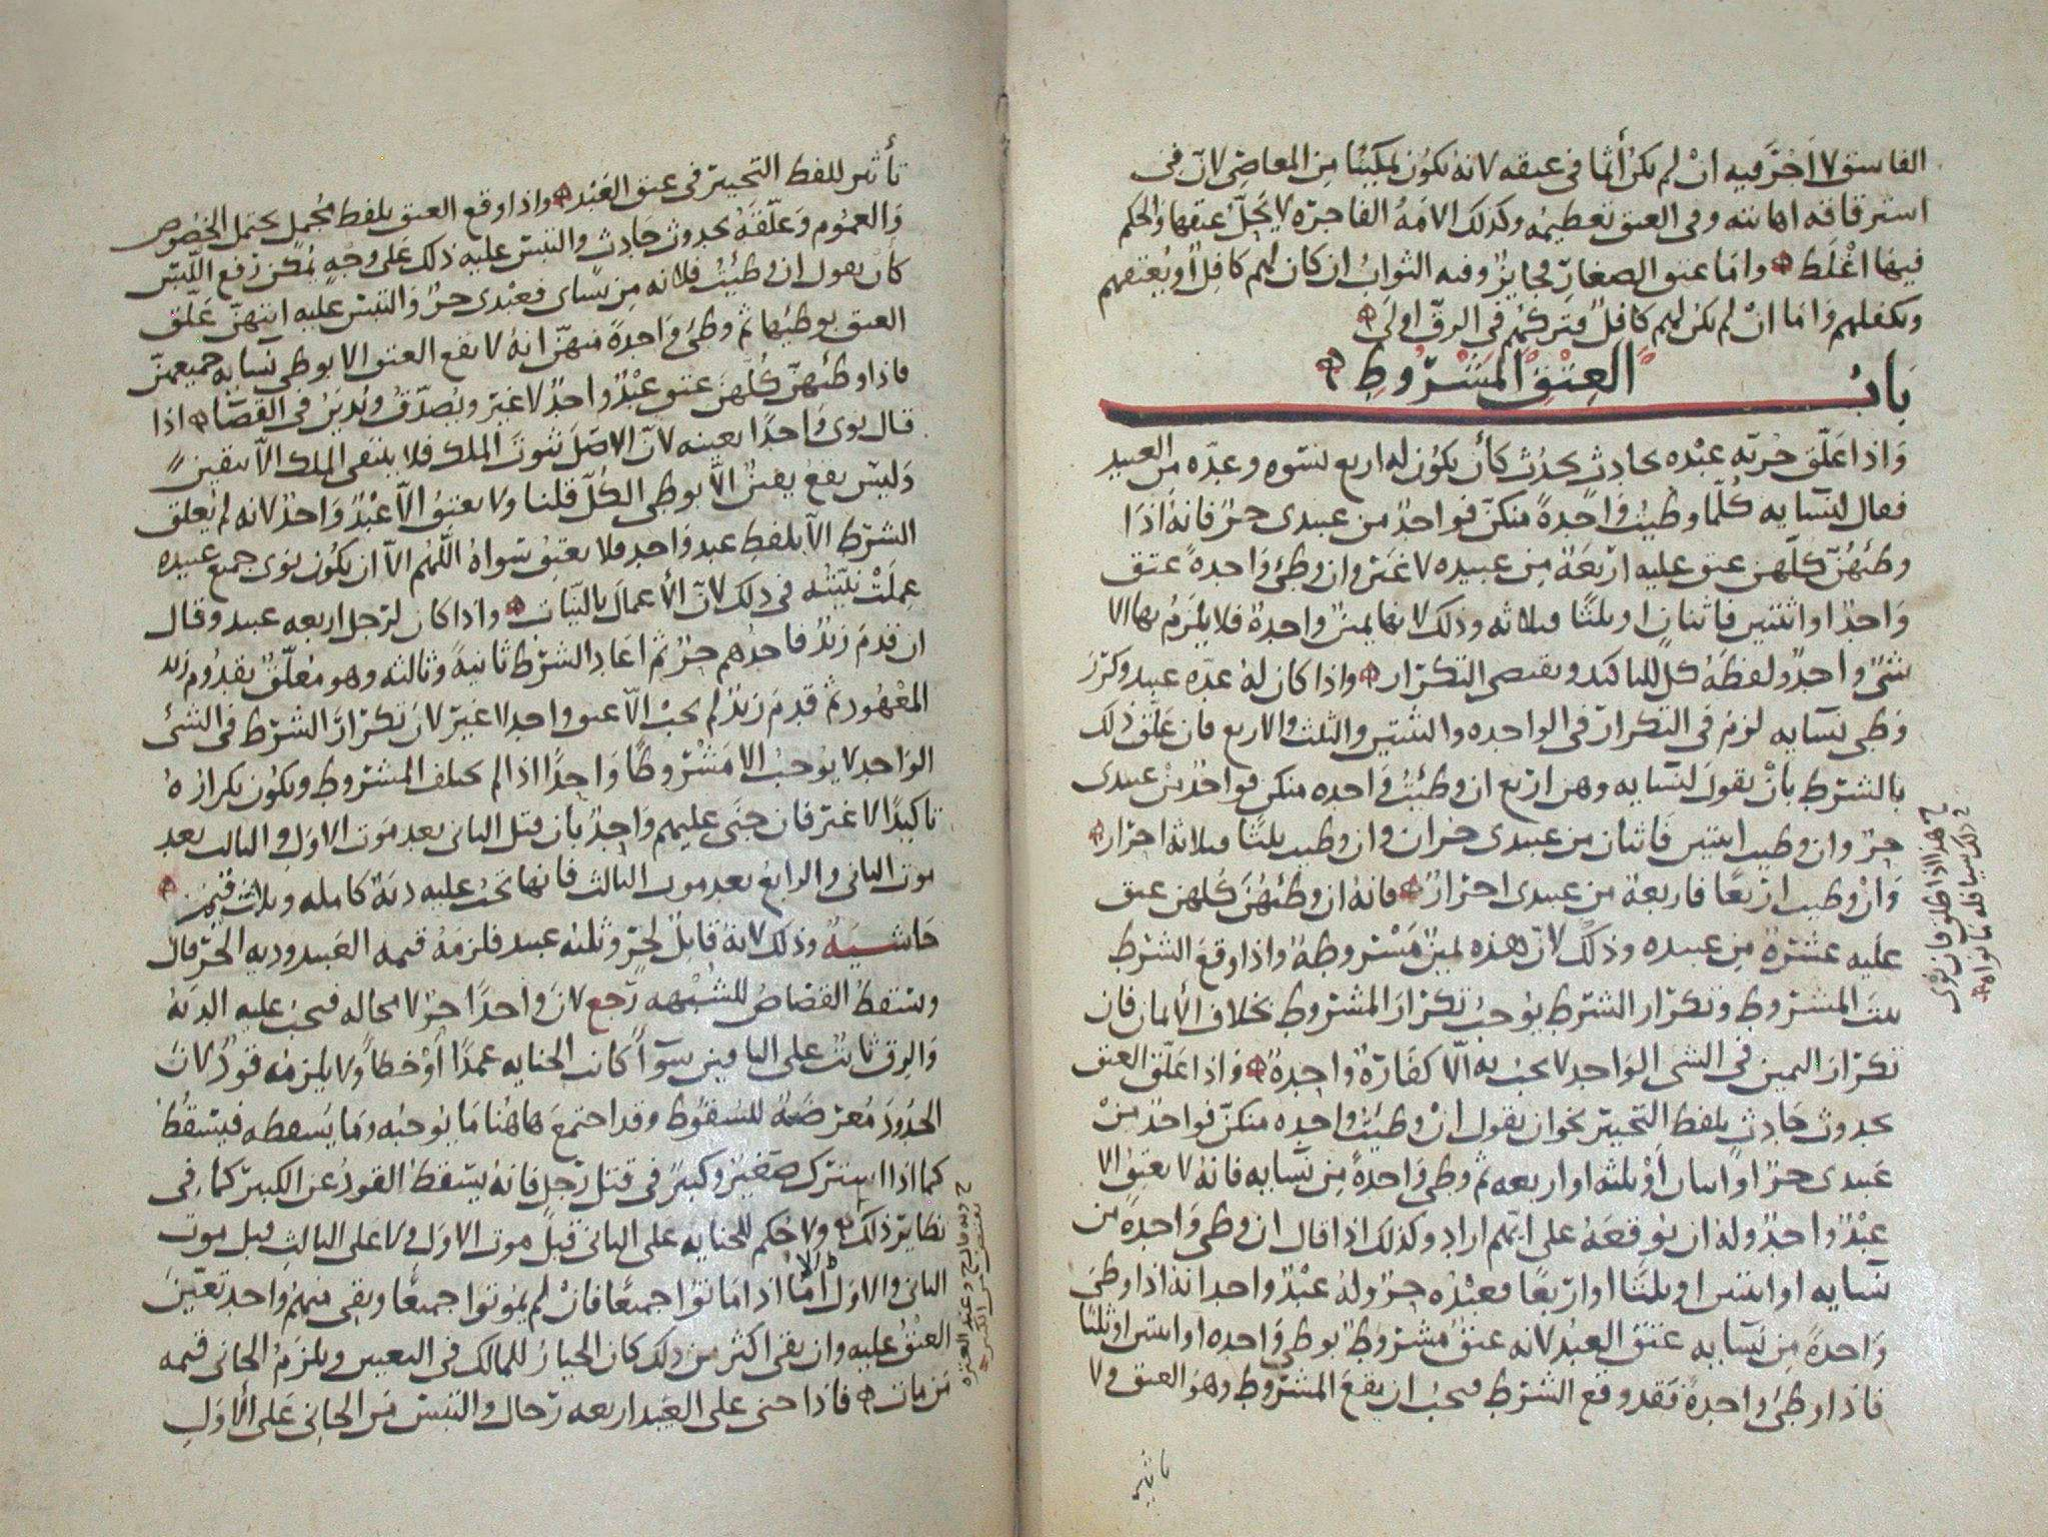 الفاسق لا اجر فيه ان لم يكن أثما في عتقه لانه يكون تمكينا من المعاصي لان في
استرقاقه اهانته وفي العتق تعظيمه وكذلك الامة الفاجره لا يحل عتقها والحكم
فيها اغلط واما عتق الصغار فجايز وفيه الثواب ان كان لهم كافل او يعتقهم
ويكفلهم واما ان لم يكن لهم كافل فتركهم في الرق اولى
باب العتق المشروط
واذا علق حرية عبده بحادث يحدث كأن يكون له اربع نسوه وعده من العبيد
فقال لنسايه كلما وطيت واحدة منكن فواحد من عبيدي حر فانه اذا
وطئهن كلهن عتق عليه اربعة من عبيده لا غير وان وطئ واحدة عتق
واحد او اثنتين فاثنان او ثلثا فثلاثه وذلك لانها يمين واحدة فلا يلزم بها الا
شئ واحد ولفظة كل للتاكيد ويقتضي التكرار واذا كان له عده عبيد وكرر
وطي نسايه لزم في التكرار في الواحده والثنتين والثلث والاربع فان علق ذلك
بالشرط بأن يقول لنسايه وهن اربع ان وطئت واحده منكن فواحد من عبيدي
حر وان وطيت اثنتين فاثنان من عبيدي حران وان وطيت ثلثا فثلاثة احرار
وان وطيت اربعا فاربعة من عبيدي احرار فانه ان وطئهن كلهن عتق
عليه عشرة من عبيده وذلك لان هذه يمين مشروطة واذا وقع الشرط
ثبت المشروط وتكرار الشرط يوجب تكرار المشروط بخلاف الأيمان فان
تكرار اليمين في الشي الواحد لا يجب به الا كفارة واحدة واذا علق العتق
بحدوث حادث بلفظ التخيير نحو ان يقول ان وطيت واحده منكن فواحد من
عبيدي حر او اثنان أو ثلثه او اربعه ثم وطي واحدة من نسايه فانه لا يعتق الا
عبد واحد وله ان يوقعه على ايهم اراد وكذلك اذا قال ان وطي واحدة من
نسايه او اثنتين او ثلثا او اربعا فعبده حر وله عبد واحد انه اذا وطئ
واحدة من نسايه عتق العبد لانه عتق مشروط بوطي واحده او اثنتين او ثلثا
فاذا وطئ واحدة فقد وقع الشرط فيجب ان يقع المشروط وهو العتق ولا
تاثير
ح هذا اذا اطلق فان نوى
ذلك فله ما نواه
تأثير للفظ التخيير في عتق العبد واذا وقع العتق بلفظ مجمل يحتمل الخصوص
والعموم وعلقه بحدوث حادث والتبس عليه ذلك على وجه يمكن رفع اللبس
كأن يقول ان وطئت فلانه من نساى فعبدي حر والتبس عليه ايتهن علق
العتق بوطيها ثم وطئ واحدة منهن انه لا يقع العتق الا بوطي نسايه جميعهن
فاذا وطئهن كلهن عتق عبد واحد لا غير ويصدق ويدين في القضا اذا
قال نوى واحدا بعينه لان الاصل ثبوت الملك فلا ينتفي الملك الا بيقين
وليس يقع يقين الا بوطي الكل قلنا ولا يعتق الا عبد واحد لانه لم يعلق
الشرط الا بلفظ عبد واحد فلا يعتق سواه اللهم الا ان يكون نوى جميع عبيده
عملت نيته في ذلك لان الأعمال بالنيات واذا كان لرجل اربعه عبيد وقال
ان قدم زيد فاحدهم حر ثم اعاد الشرط ثانية وثالثه وهو معلق بقدوم زيد
المعهود ثم قدم زيد لم يجب الا عتق واحد لا غير لان تكرار الشرط في الشئ
الواحد لا يوجب الا مشروطا واحدا اذا لم يختلف المشروط ويكون تكراره
تاكيدا لا غير فان جنى عليهم واحد بان قتل الثاني بعد موت الاول والثالث بعد
موت الثاني والرابع بعد موت الثالث فانها تجب عليه دية كامله وثلاث قيم
حاشية وذلك لانه قاتل لحر وثلثه عبيد فلزمه قيمه العبيد وديه الحر قال
وسقط القصاص للشبهه رجع لان واحدا حر لا محاله فيجب عليه الدية
والرق ثابت على الباقين سوآ كانت الجنايه عمدا أو خطأ ولا يلزمه قود لان
الحدود معرضة للسقوط وقد اجتمع هاهنا ما يوجبه وما يسقطه فيسقط
كما اذا اشترك صغير وكبير في قتل رجل فانه يسقط القود عن الكبير كما في
نظاير ذلك ولا حكم للجنايه على الثاني قبل موت الاول ولا على الثالث قبل موت
الثاني والاول اما اذا ماتوا جميعا فان لم يموتوا جميعا وبقي منهم واحد تعين
العتق عليه وان بقي اكثر من ذلك كان الخيار للمالك في التعيين ويلزم الجاني قيمه
من مات فاذا جنى على العبيد اربعه رجال والتبس من الجاني على الأول